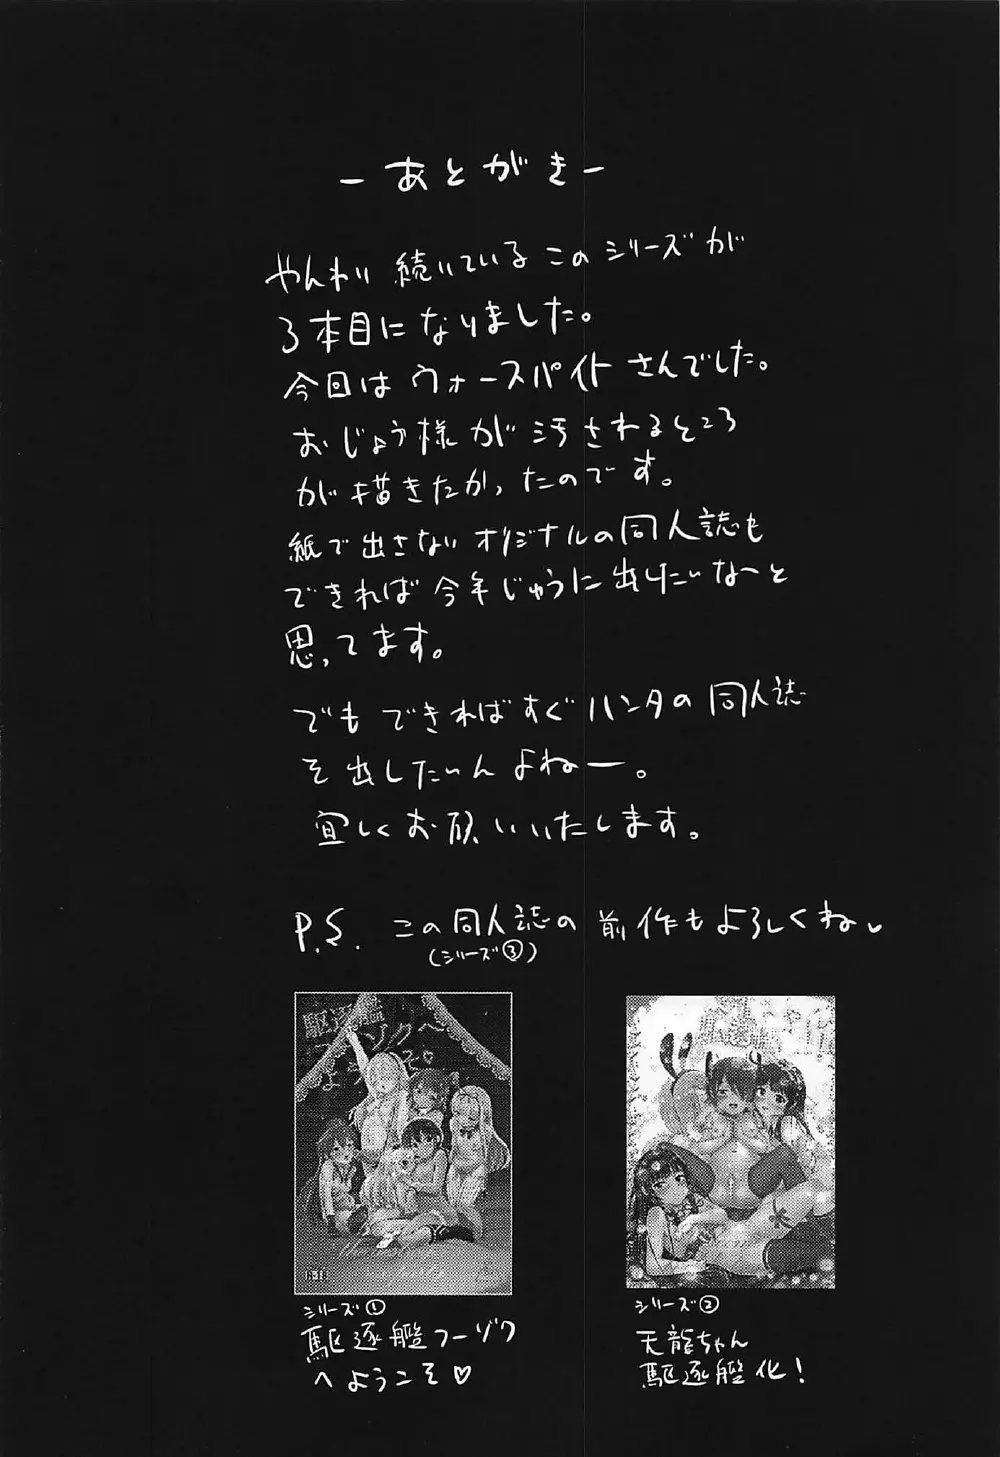 -あとがき-
やんわり続いているこのシリーズが
3本目になりました。
今回はウォースパイトさんでした。
おじょう様が汚されるところ
が描きたかったのです。
紙で出さないオリジナルの同人誌も
できれば今年じゅうに出したいなーと
思ってます。
でもできればすぐハンタの同人誌
を出したいんよねー。
宜しくお願いいたします。
P.S. この同人誌の前作もよろしくね
(シリーズ③)
シリーズ①
駆逐艦フーゾク
へようこそ♡
シリーズ②
天龍ちゃん
駆逐艦化!